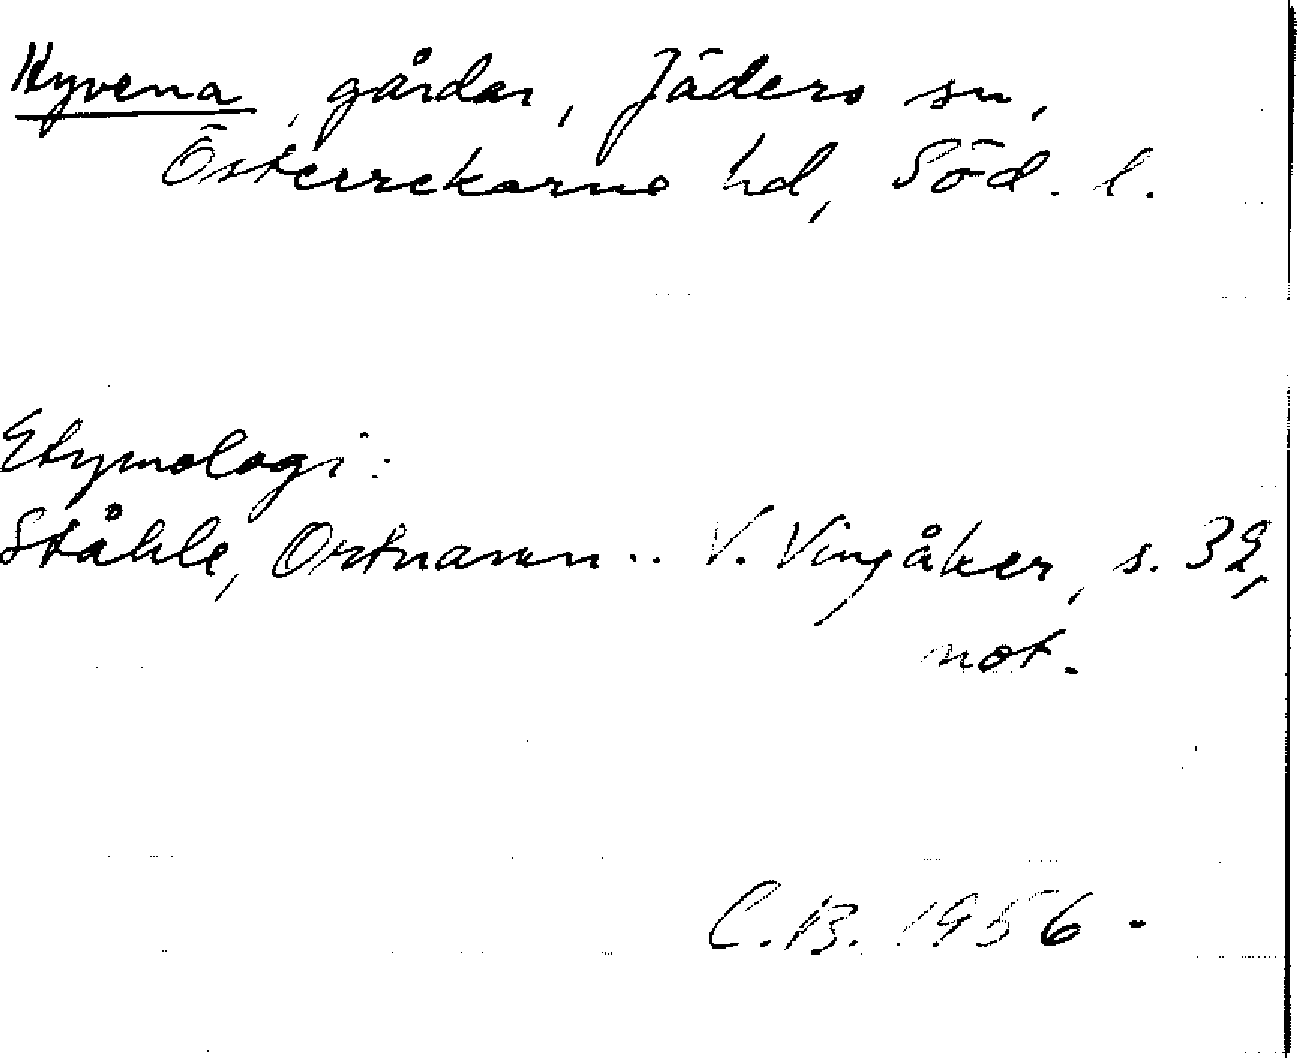 Hyvena, gårdar, Jäders sn,
Österrekarne hd, Söd. l.
Etymologi:
Ståhle, Ortnamn.. V. Vingåker, s. 32,
not.
C.B. 1956.